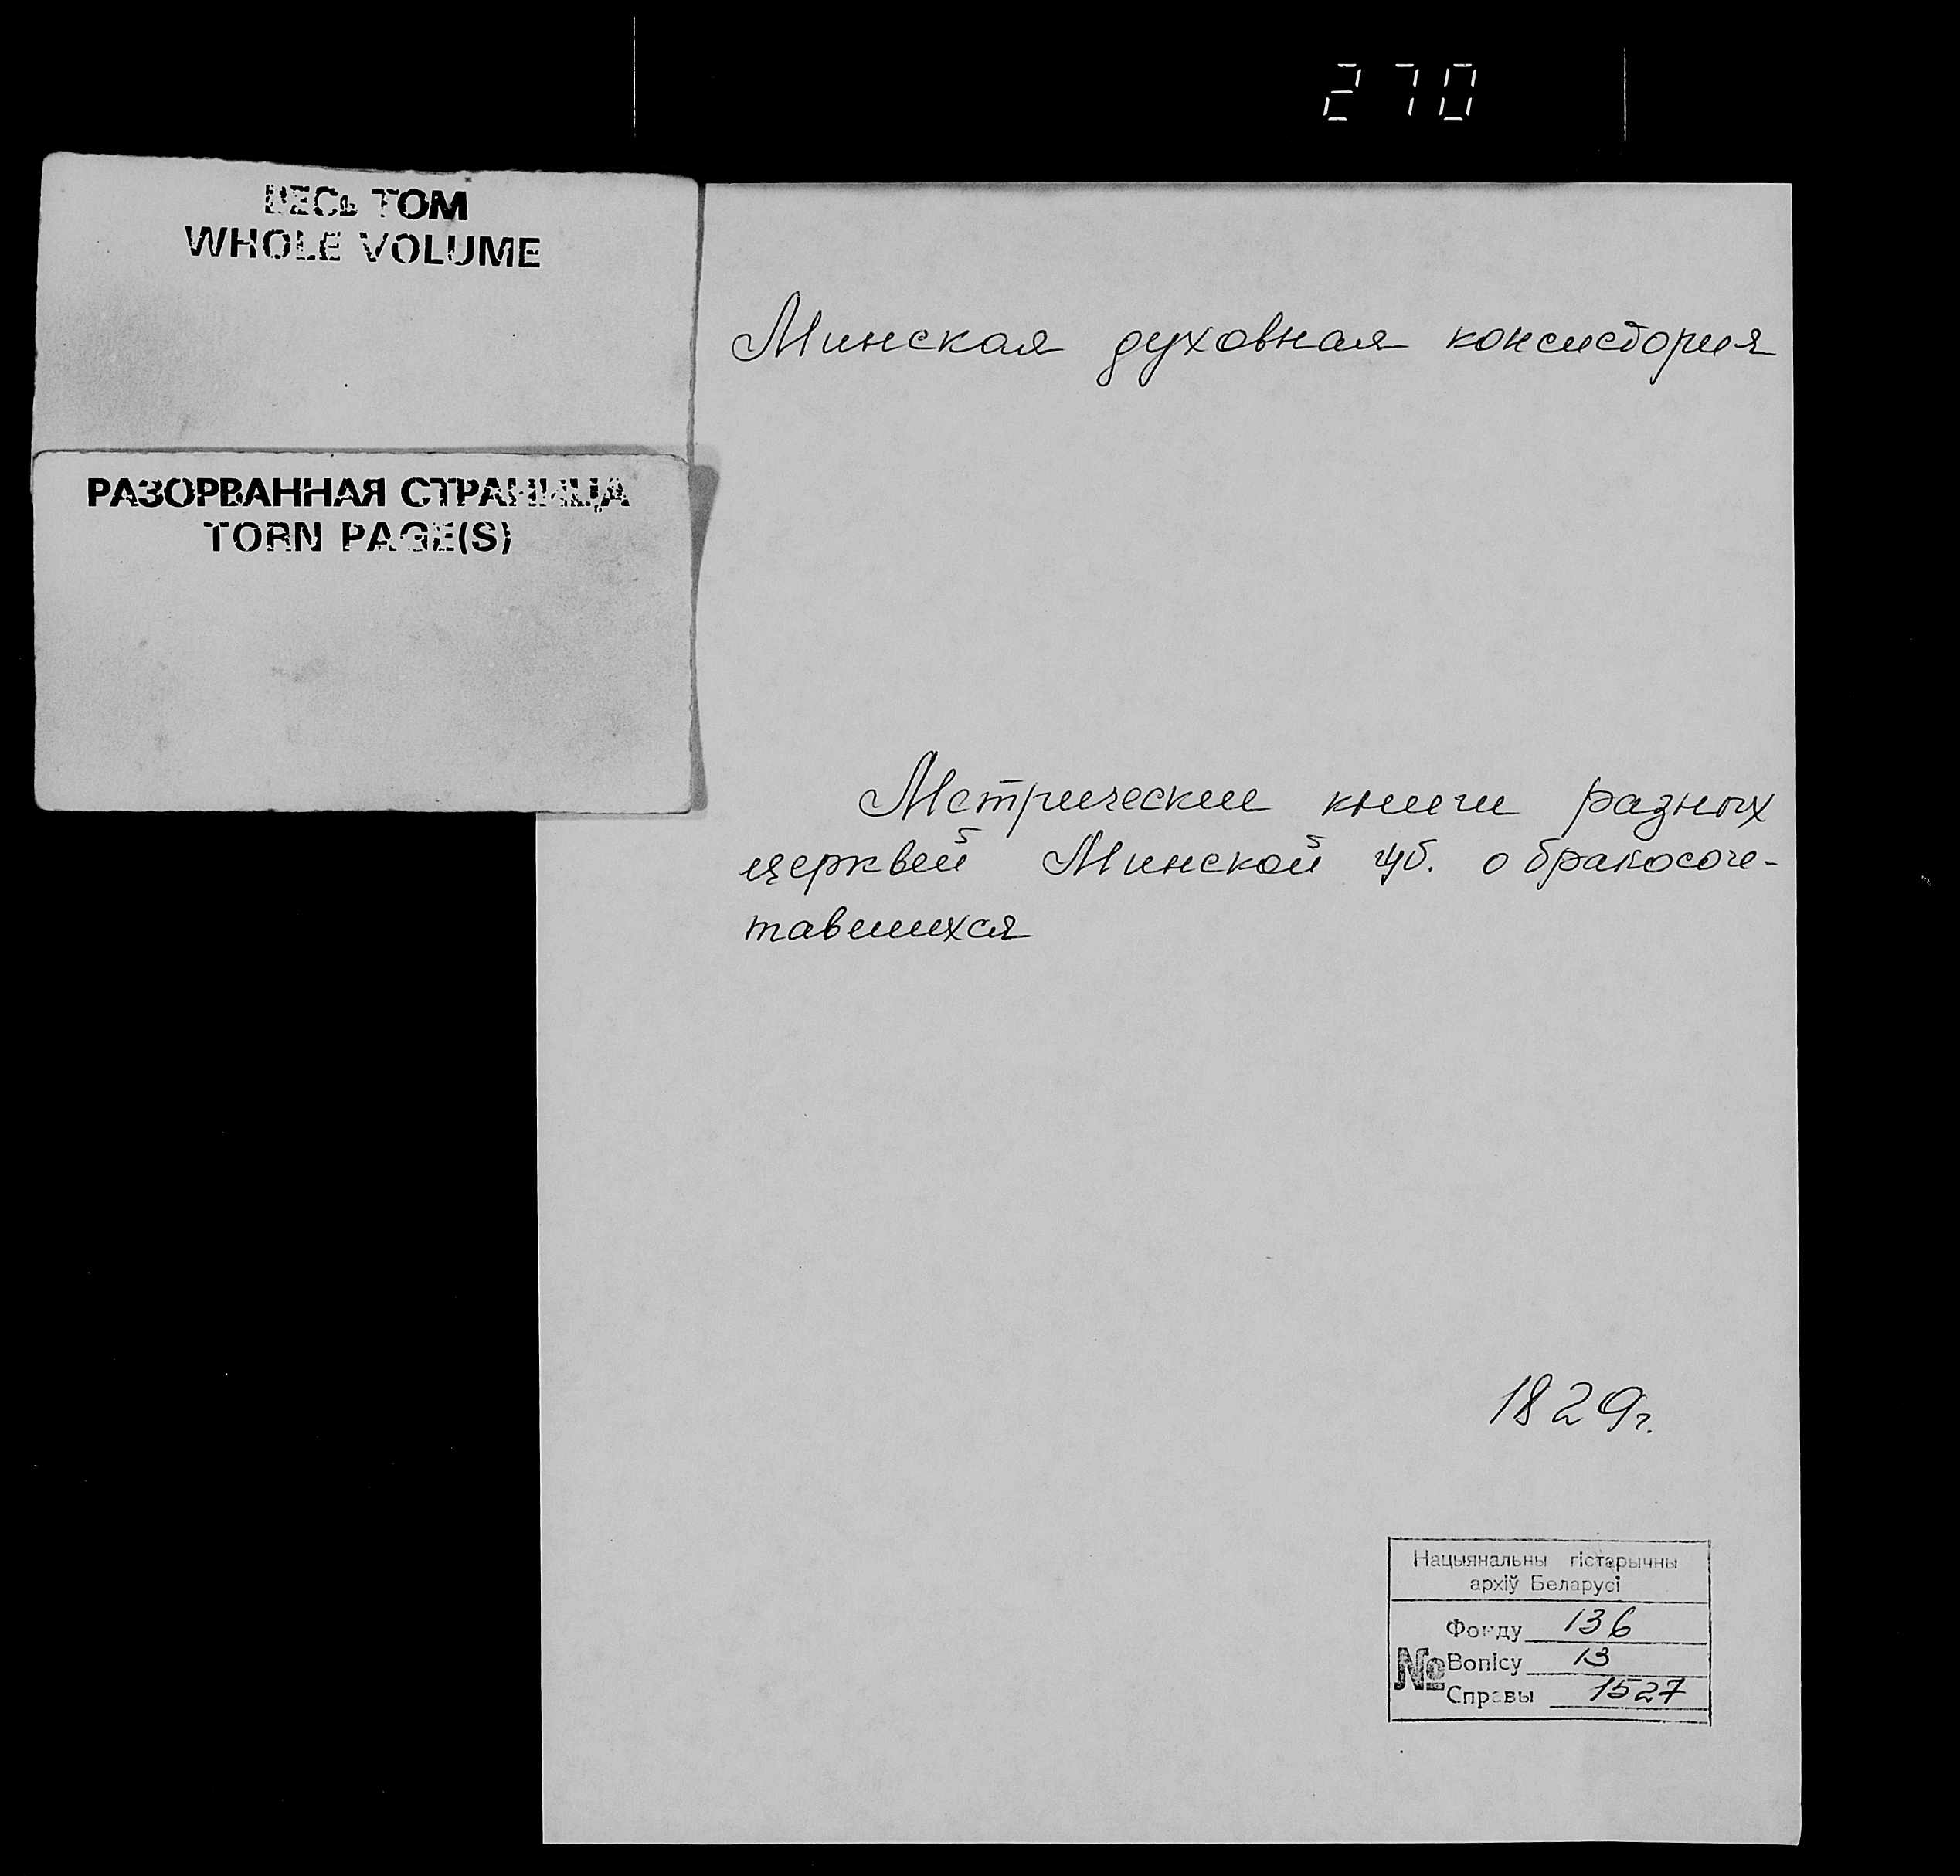 270
ВЕСЬ ТОМ
WHOLE VOLUME
РАЗОРВАННАЯ СТРАНИЦА
TORN PAGE(S)
Минская духовная консистория
Метрические книги разных
церквей Минской губ. о бракосоче-
тавшихся
1829г.
Нацыянальны гістарычны
архіў Беларусі
Фонду 136
№ Вопісу 13
Справы 1527